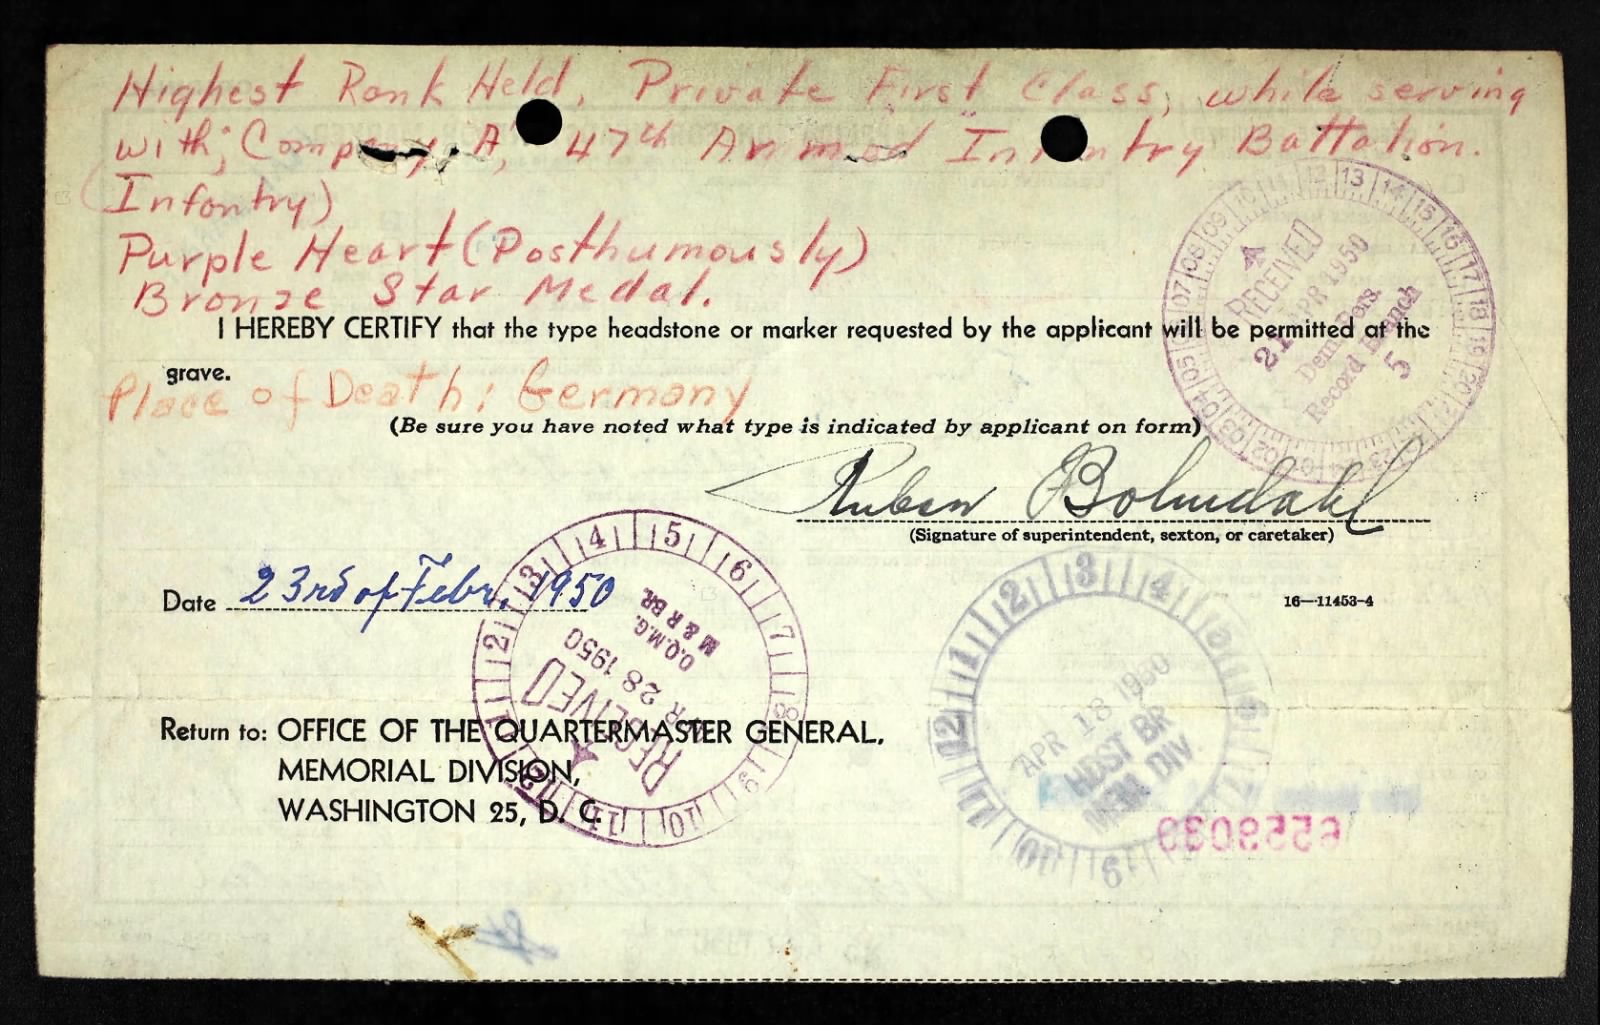 Highest Rank Held, Private First Class, while serving
with; Company "A," 47th Armored Infantry Battalion.
(Infantry)
Purple Heart (Posthumously)
Bronze Star Medal.
I HEREBY CERTIFY that the type headstone or marker requested by the applicant will be permitted at the
grave.
Place of Death: Germany
(Be sure you have noted what type is indicated by applicant on form)
Ruben Bolmdahl
(Signature of superintendent, sexton, or caretaker)
Date 23rd of Febr. 1950
16—11453-4
Return to: OFFICE OF THE QUARTERMASTER GENERAL,
MEMORIAL DIVISION,
WASHINGTON 25, D. C.
RECEIVED
21 APR 1950
Dem. Pers.
Record Branch
5
RECEIVED
APR 28 1950
O.Q.M.G.
M & R BR.
APR 18 1950
HDST BR
MEM. DIV